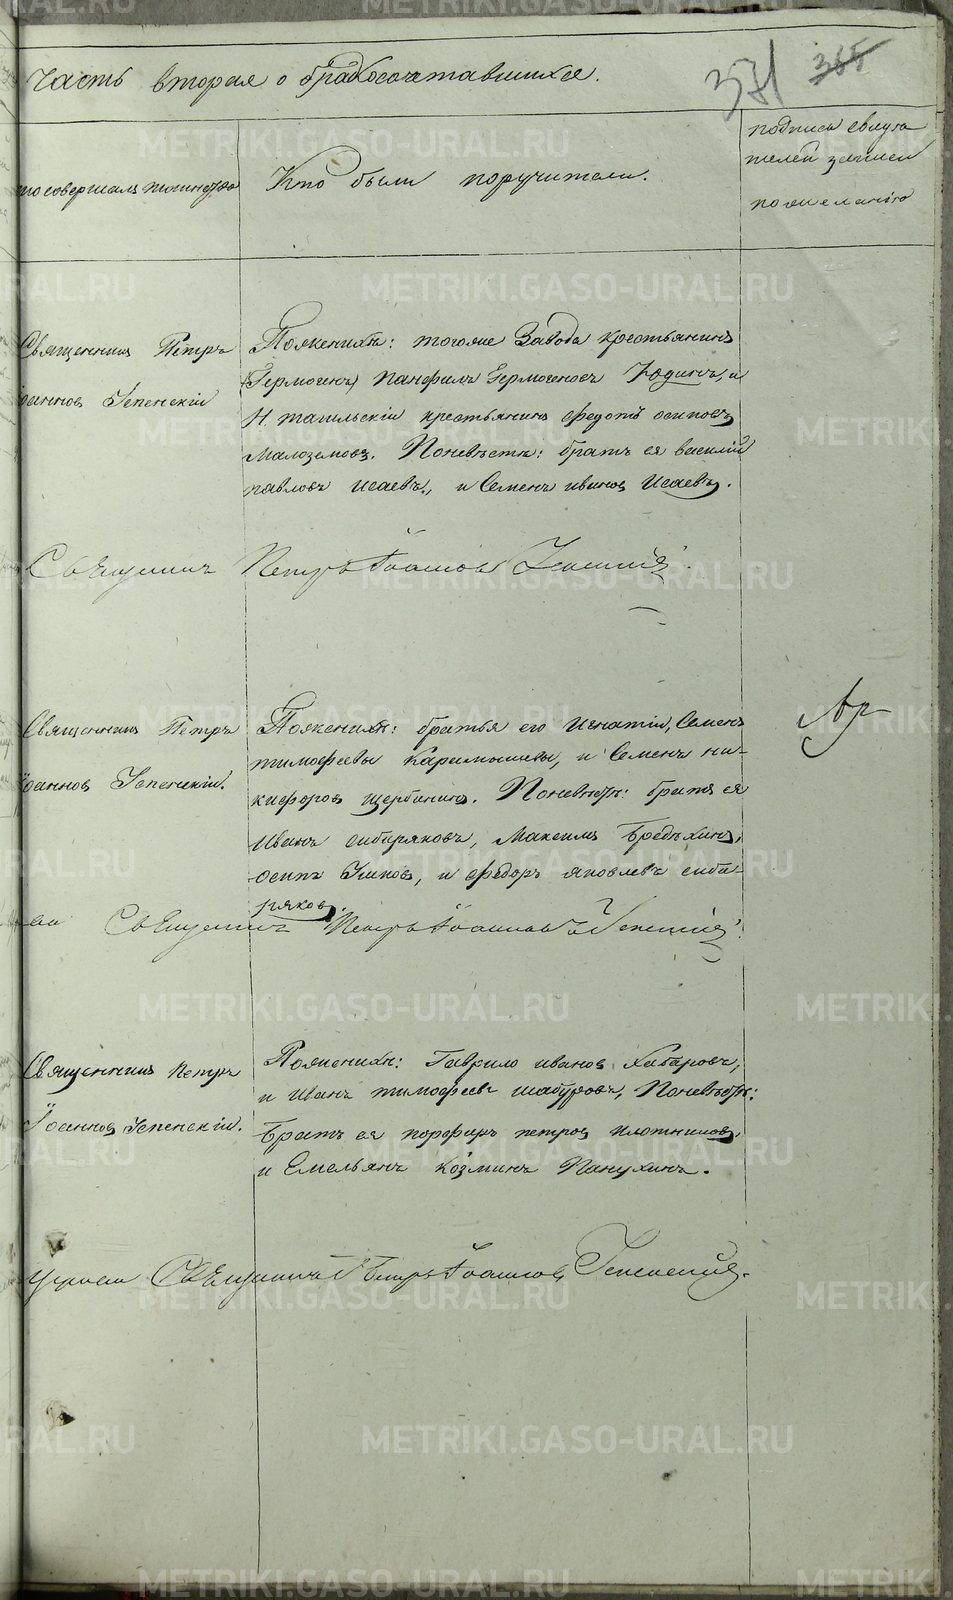 Часть вторая о бракосочетавшихся.
371 365
кто совершалъ таинство
Кто были поручители.
подписи свидѣ
телей записи
по желанію
Священникъ Петръ
Іоанновъ Успенскій
По женихѣ: тогоже Завода крестьянинъ
(Гермогенъ) Панфилъ Гермогеновъ Юдинъ, и
Н. тагильскій крестьянинъ Федотъ осиповъ
Малоземовъ. По невѣстѣ: братъ ея василій
павловъ Исаевъ, и Семенъ ивановъ Исаевъ.
Священникъ Петръ Іоанновъ Успенскій.
Священникъ Петръ
Іоанновъ Успенскій.
По женихѣ: братья его Игнатій, Семенъ
тимофеевы и Семенъ ни-
кифоровъ щербининъ. По невѣстѣ: братъ ея
Иванъ сибиряковъ, Максимъ Бредихинъ,
осипъ Ушковъ, и федоръ яковлевъ сиби-
ряковъ.
Священникъ Петръ Іоанновъ Успенскій.
Священникъ Петръ
Іоанновъ Успенскій.
По женихѣ: Гаврило ивановъ Хабаровъ,
и Иванъ тимофеевъ шабуровъ, По невѣстѣ:
Братъ ея порфиръ петровъ плотниковъ,
и Емельянъ козминъ Панухинъ.
Священникъ Петръ Іоанновъ Успенскій.
METRIKI.GASO-URAL.RU